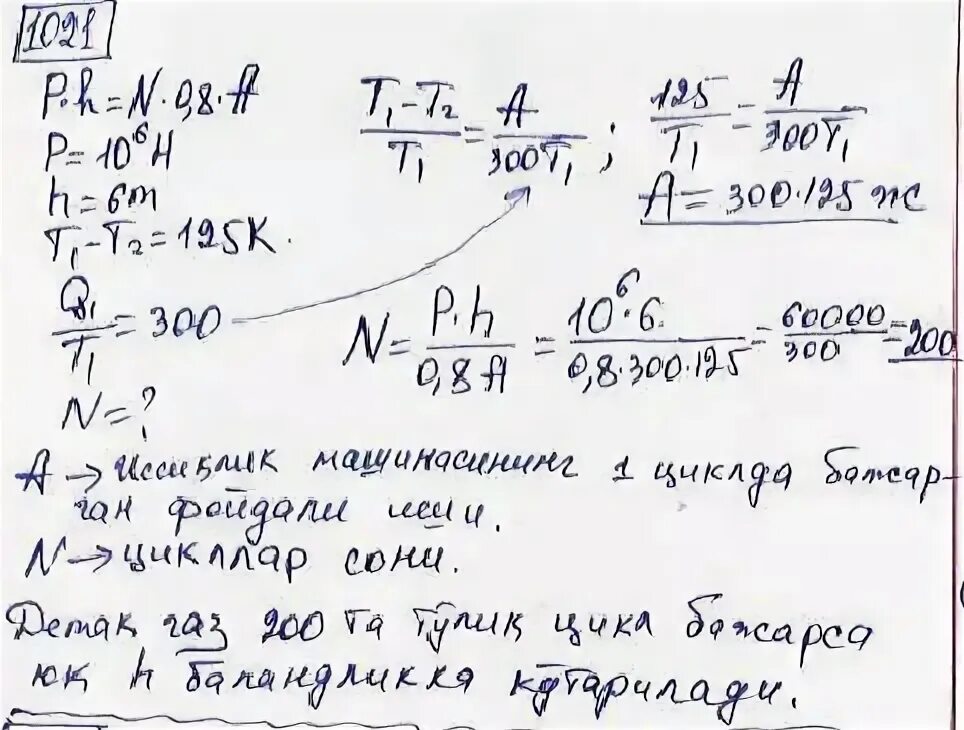 1021
P·h = N·0,8·A
P = 10⁶ Н
h = 6m
T₁ - T₂ = 125K.
Q₁/T₁ = 300
N = ?
(T₁ - T₂)/T₁ = A/300T₁ ; 125/T₁ = A/300T₁
A = 300·125 ж
N = P·h/0,8A = 10⁶·6/0,8·300·125 = 60000/300 = 200
A → Иссиқлик машинасининг 1 циклда бажар-
ган фойдали иши.
N → цикллар сони.
Демак газ 200 та тўлиқ цикл бажарса
юк h баландликка кўтарилади.